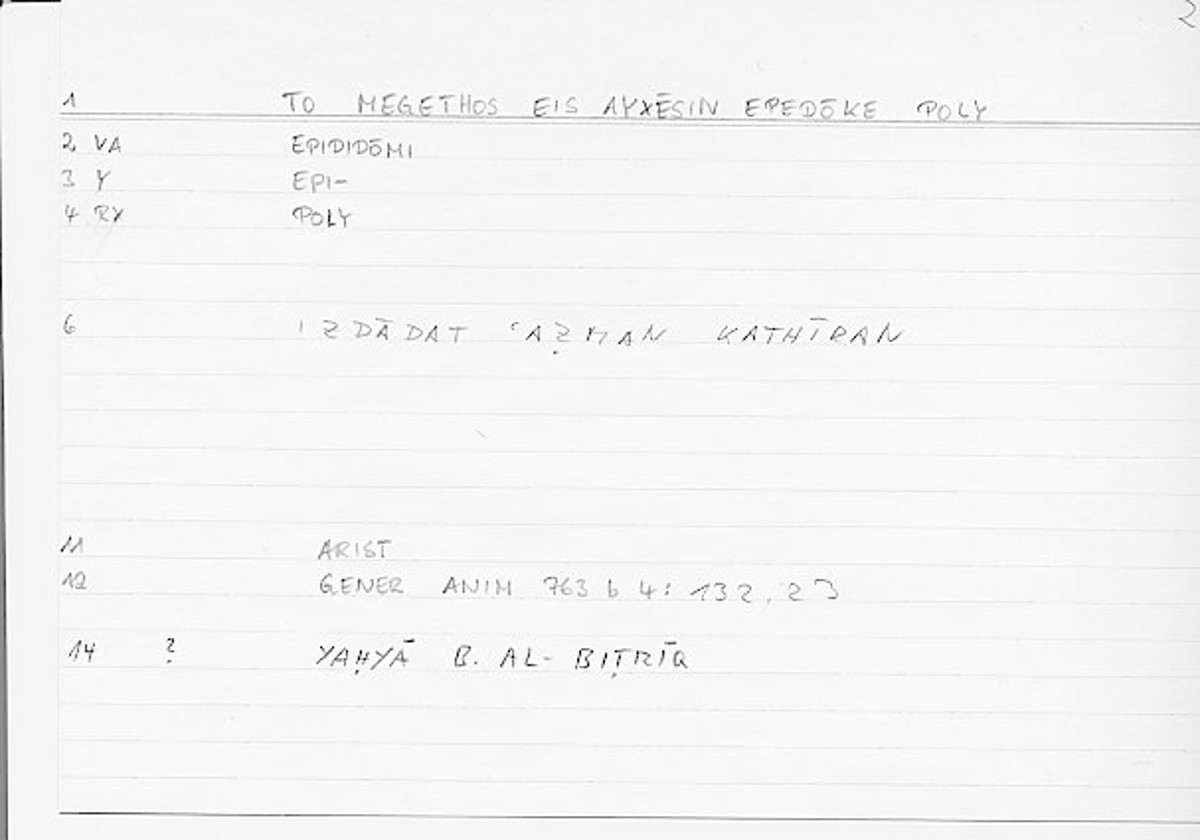 2
1 TO MEGETHOS EIS AYXĒSIN EPEDŌKE POLY
2 VA EPIDIDŌMI
3 Y EPI-
4 RX POLY
6 IZDĀDAT ʿAẒMAN KATHĪRAN
11 ARIST
12 GENER ANIM 763 b 4: 132.23
14 ? YAḤYĀ B. AL-BIṬRĪQ